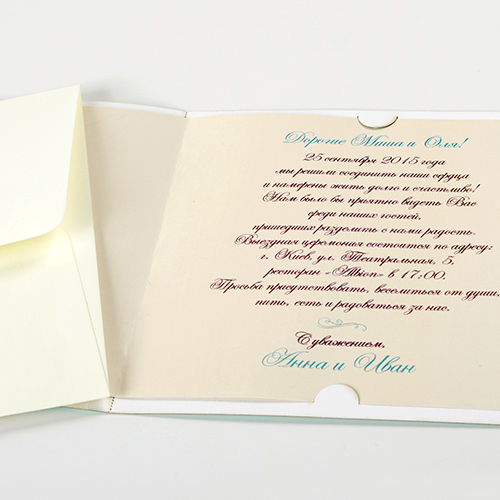 Дорогие Миша и Оля!
25 сентября 2015 года
мы решили соединить наши сердца
и намерены жить долго и счастливо!
Нам было бы приятно видеть Вас
среди наших гостей,
пришедших разделить с нами радость.
Выездная церемония состоится по адресу:
г. Киев, ул. Театральная, 5,
ресторан в 17:00.
Просьба присутствовать, веселиться от души,
пить, есть и радоваться за нас.
С уважением,
Анна и Иван